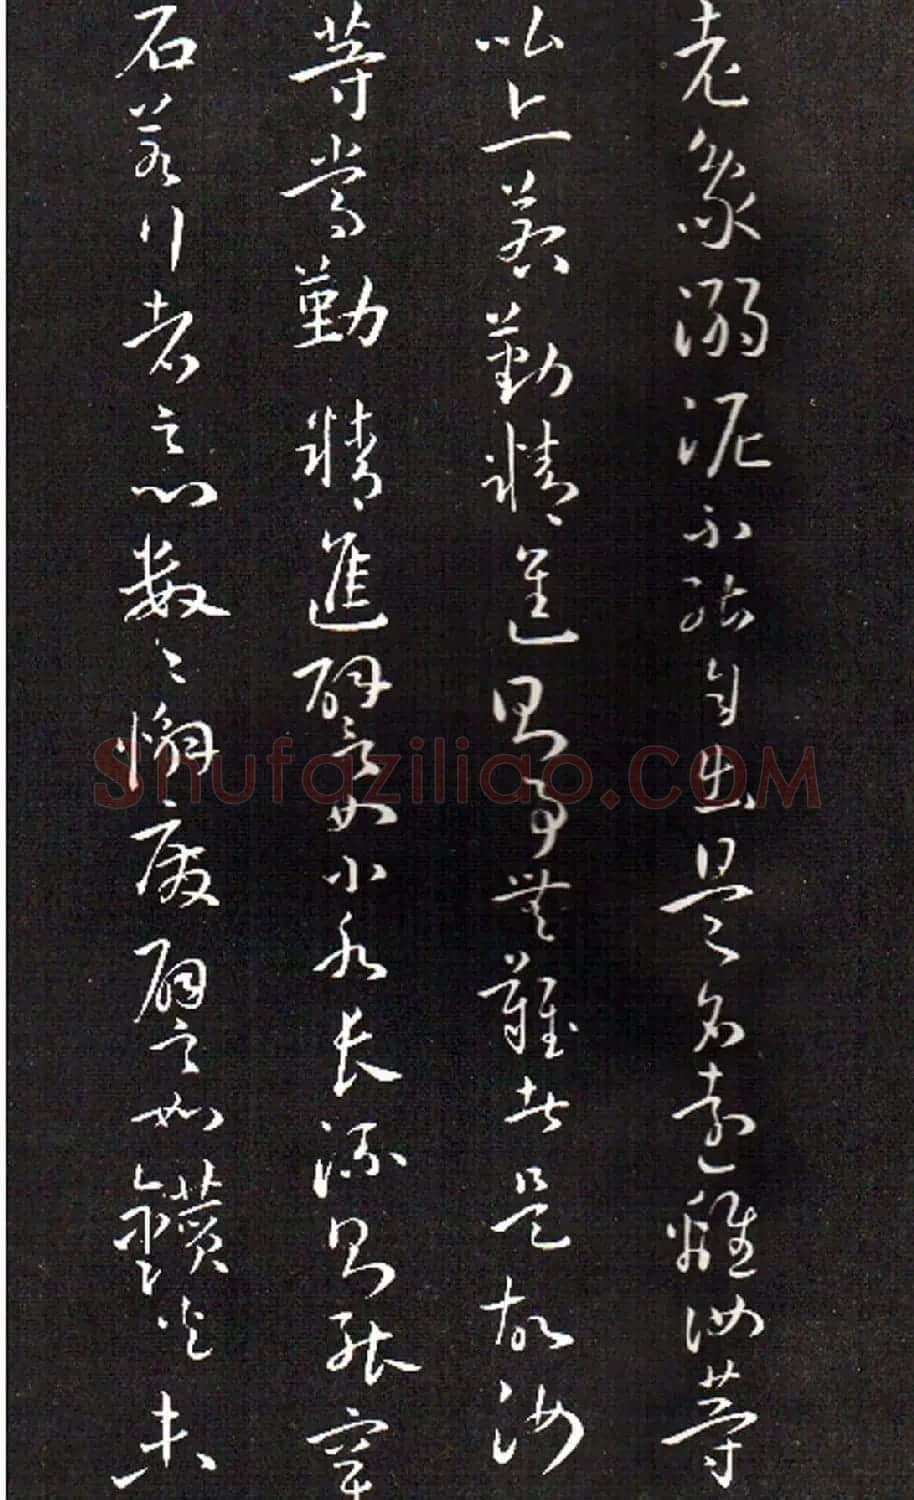 老象溺泥不能自出是名遠離汝等
比丘若勤精進則事無難者是故汝
等當勤精進譬如小水長流則能穿
石若行者之心數〻懈廢譬如鑽火未
Shufaziliao.COM